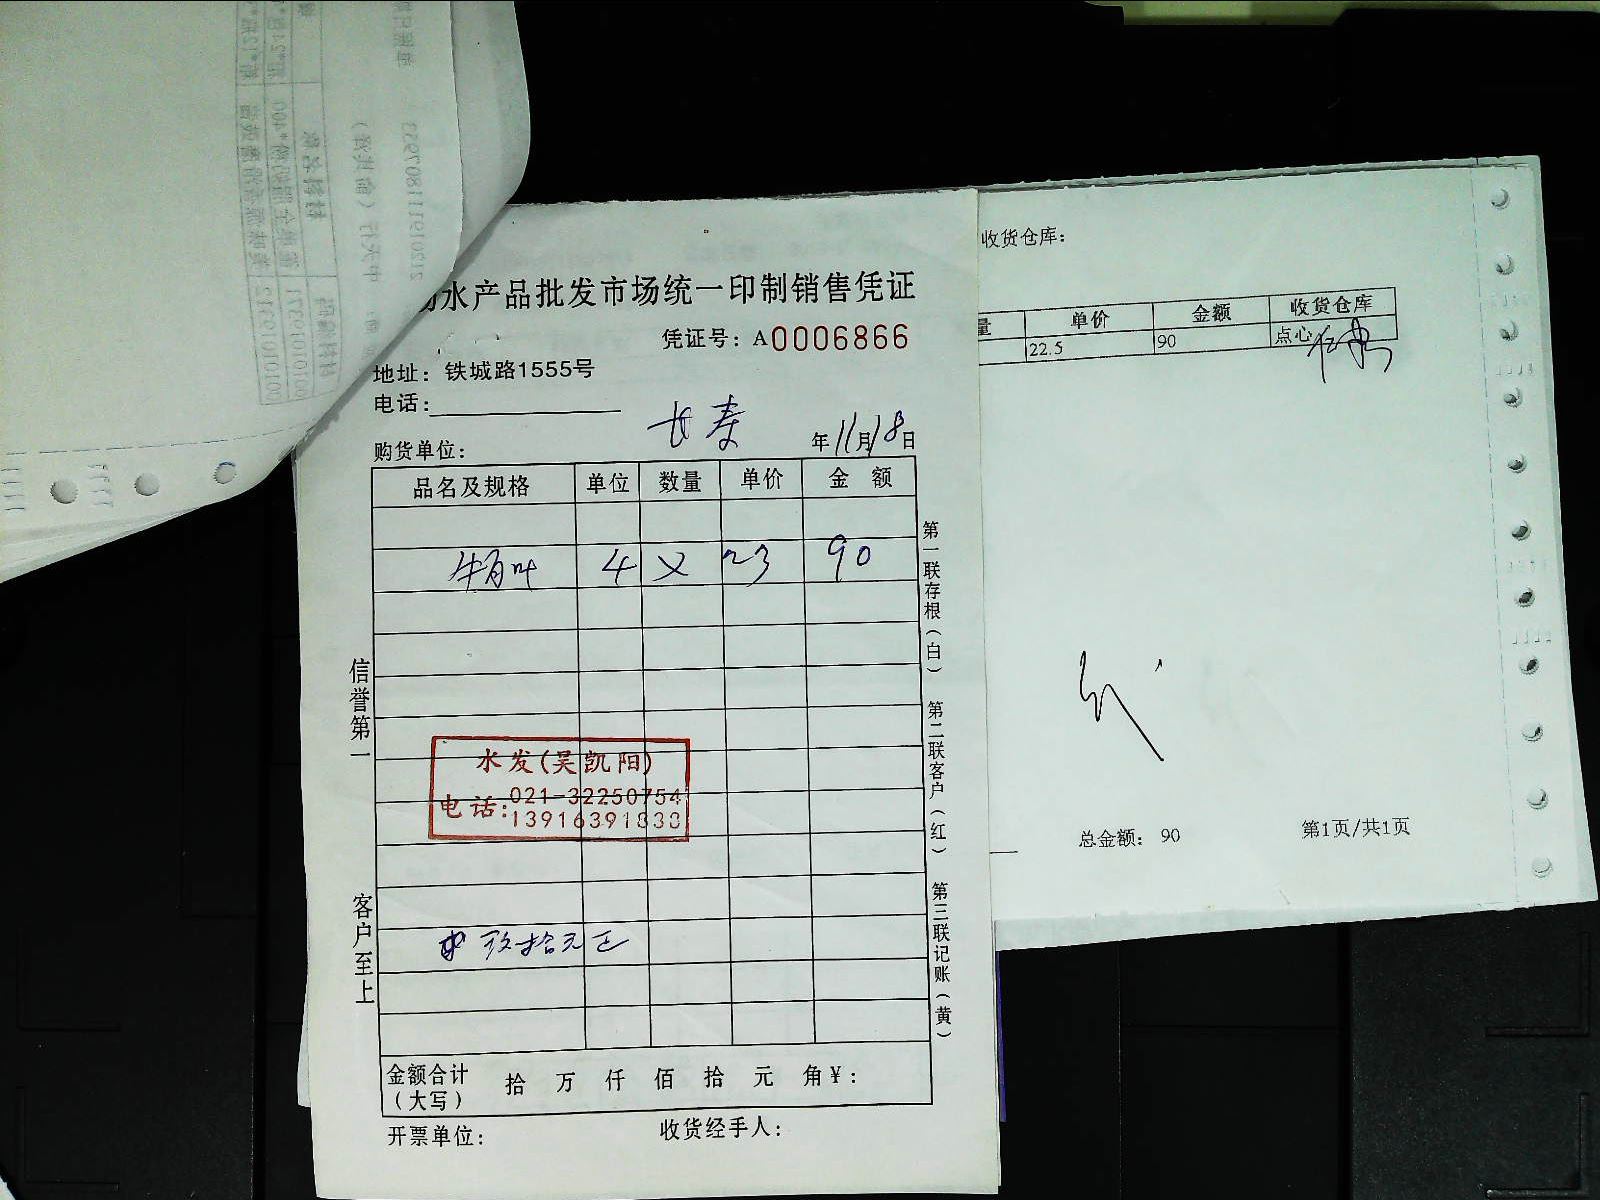 水产品批发市场统一印制销售凭证
凭证号：A0006866
地址：铁城路1555号
电话：
长寿
购货单位： 年11月18日
品名及规格 单位 数量 单价 金 额
牛百叶 4 × 23 90
水发(吴凯阳)
电话:021-32250754
13916391830
玖拾元正
金额合计 拾 万 仟 佰 拾 元 角¥：
（大写）
开票单位： 收货经手人：
信誉第一
客户至上
第一联存根（白）
第二联客户（红）
第三联记账（黄）
收货仓库：
量 单价 金额 收货仓库
22.5 90 点心
总金额： 90 第1页/共1页